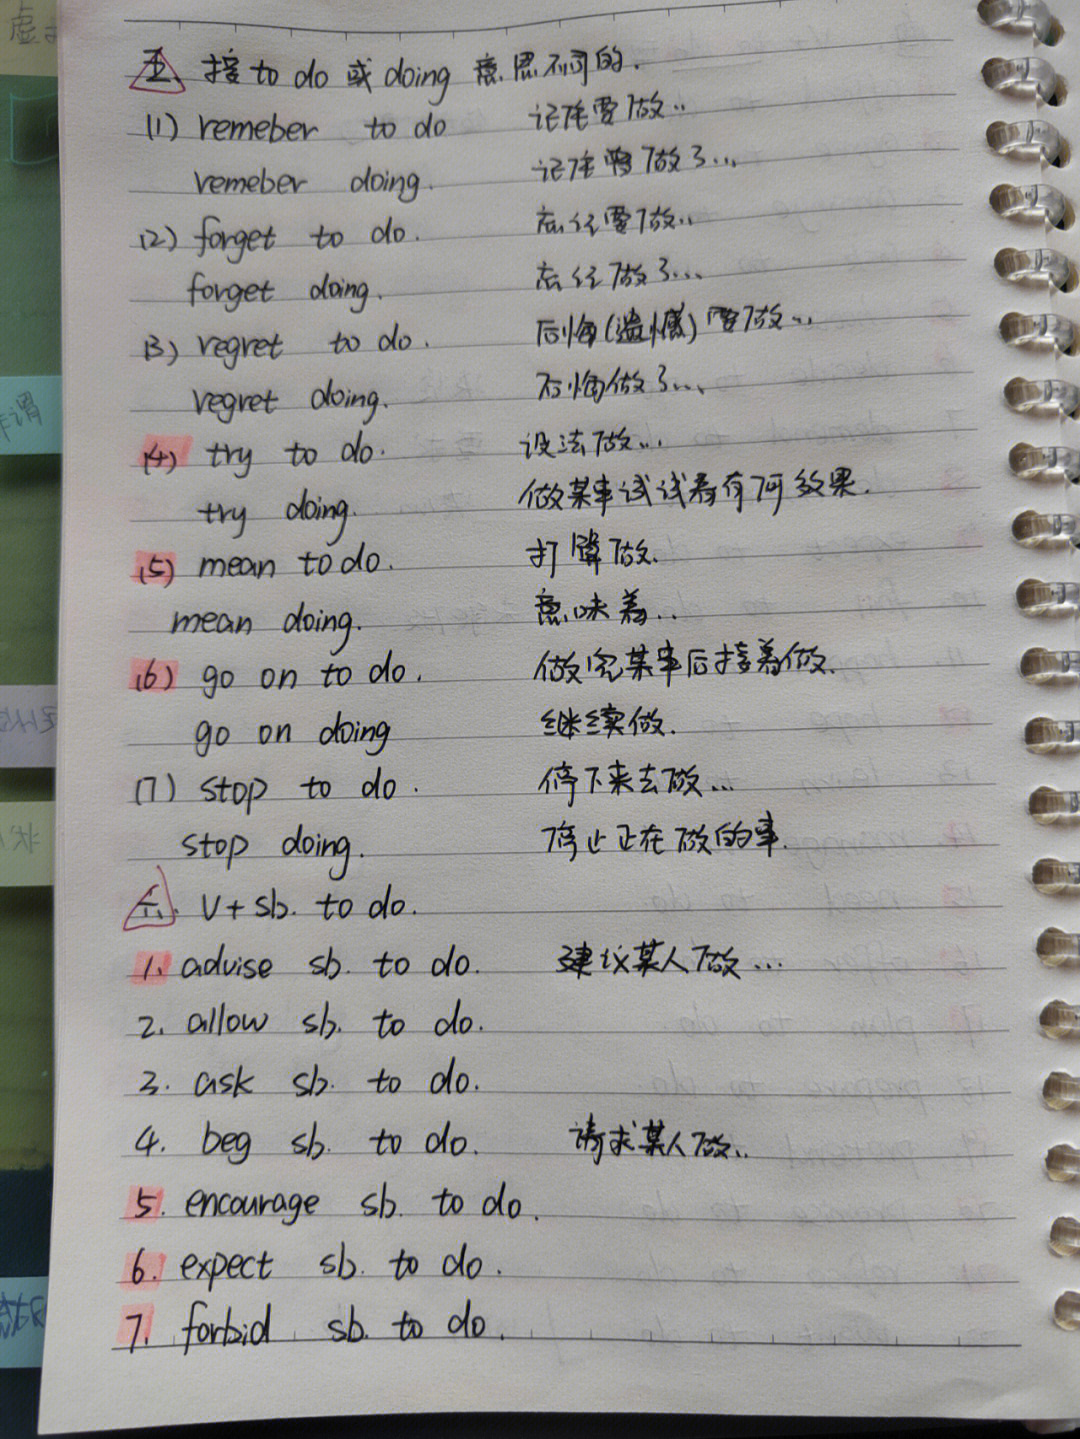 五、接 to do 或 doing 意思不同的.
(1) remeber to do 记住要做..
remeber doing. 记住做了...
(2) forget to do. 忘记要做..
forget doing. 忘记做了...
(3) regret to do. 后悔(遗憾)要做...
regret doing. 后悔做了...
(4) try to do. 设法做...
try doing. 做某事试试看有何效果.
(5) mean to do. 打算做.
mean doing. 意味着..
(6) go on to do. 做完某事后接着做.
go on doing 继续做.
(7) stop to do. 停下来去做...
stop doing. 停止正在做的事.
六. V+sb. to do.
1. advise sb. to do. 建议某人做...
2. allow sb. to do.
3. ask sb. to do.
4. beg sb. to do. 请求某人做..
5. encourage sb. to do.
6. expect sb. to do.
7. forbid sb. to do.